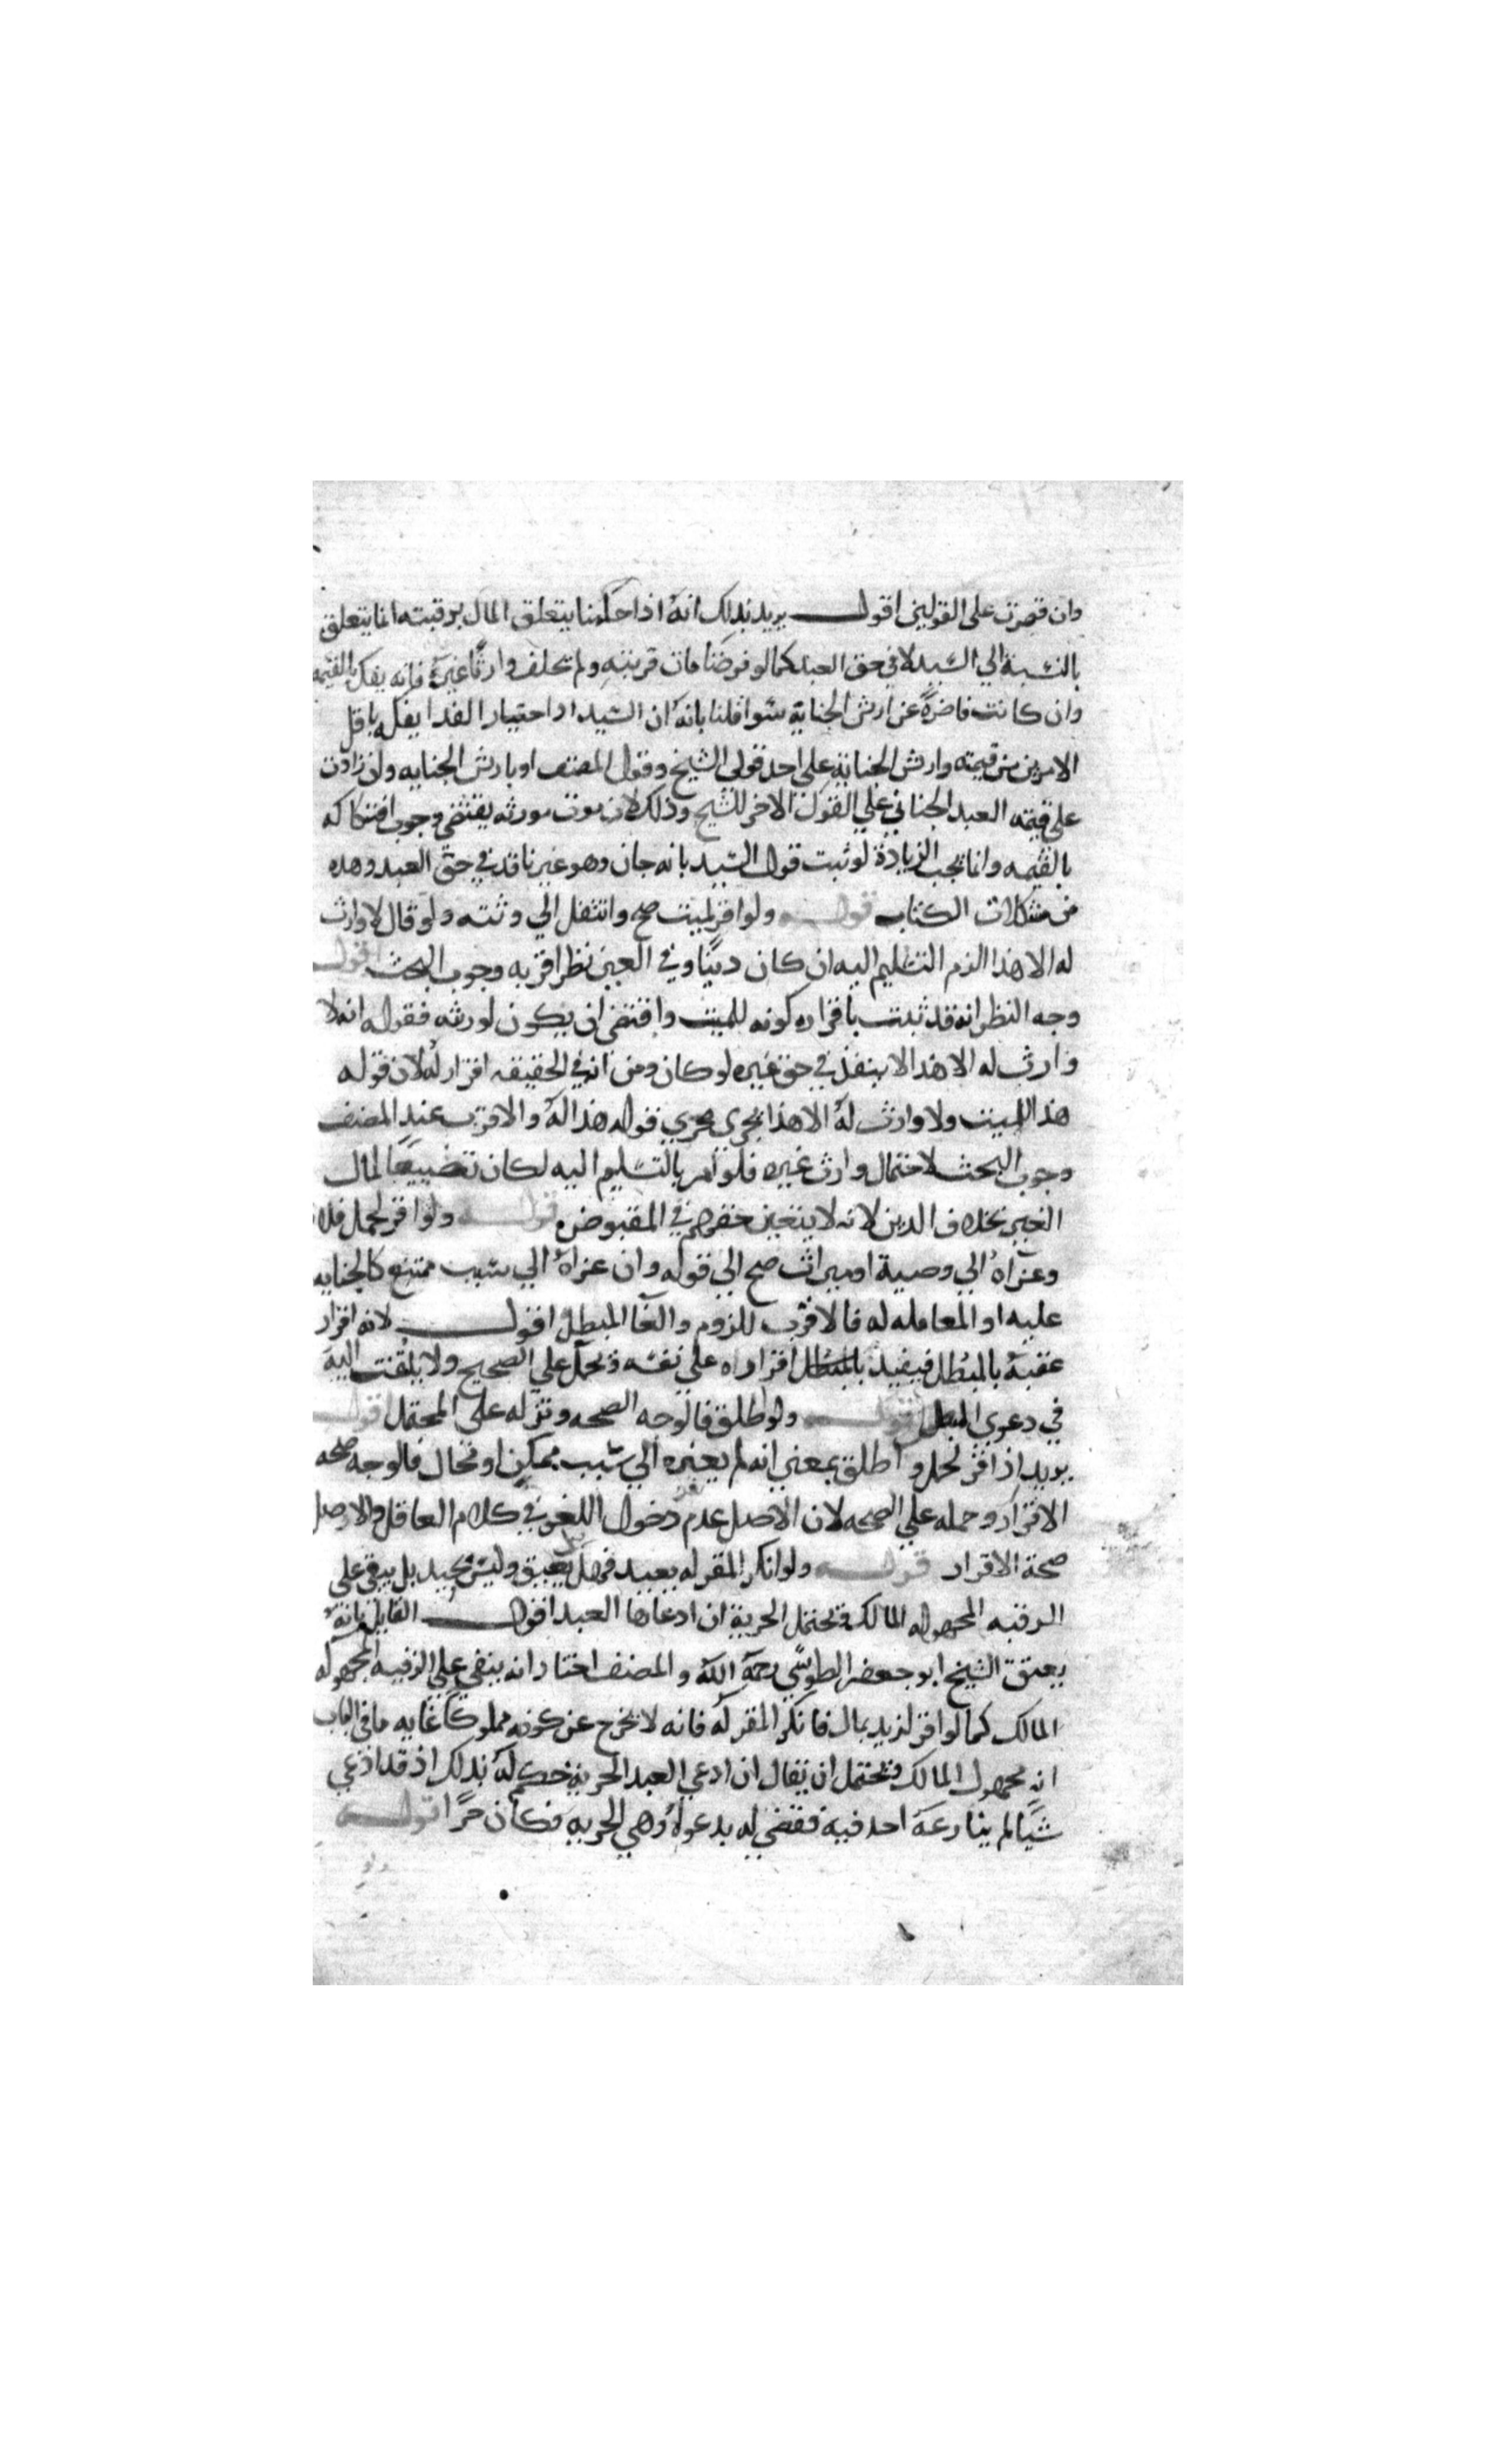 وان قصرت على القولين اقول يريد بذلك انه اذا حكمنا بتعلق المال برقبته انما يتعلق
بالنسبة الي السيد لا في حق العبد كما لو فرضنا مات قريبه ولم يخلف وارثا غيره فانه يفك بالقيمه
وان كانت قاصرة عن ارش الجناية سوا قلنا بانه ان السيد اذا اختيار الفدا يفكه باقل
الامرين من قيمته وارش الجناية علي احد قولي الشيخ وقول المصنف او بارش الجنايه وان زادت
علي قيمه العبد الجاني علي القول الاخر للشيخ وذلك لان موت مورثه يقتضي وجوب افتكاكه
بالقيمه وانما يجب الزيادة لو ثبت قول السيد بانه جان وهو غير نافذ في حق العبد وهده
من مشكلات الكتاب قوله ولو اقر لميت صح وانتقل الي ورثته ولو قال لا وارث
له الا هذا الزم التسليم اليه ان كان دينا وفي العين نظر اقربه وجوب البحث اقول
وجه النظر انه قد ثبت باقراره كونه للميت واقتضى ان يكون لورثه فقوله انه لا
وارث له الا هذا لا ينفذ في حق غيره لو كان ومن انه في الحقيقه اقرار له لان قوله
هذا للميت ولا وارث له الا هذا يجري مجري قوله هذا له والاقرب عند المصنف
وجوب البحث لاحتمال وارث غيره فلو امر بالتسليم اليه لكان تضييعا لمال
الغير بخلاف الدين لانه لا يتعين حقهم في المقبوض قوله ولو اقر لحمل فلان
وعزاه الي وصية او ميراث صح الي قوله وان عزاه الي سبب ممتنع كالجنايه
عليه او المعامله له فالاقرب اللزوم والغا المبطل اقول لانه اقرار
عقبه بالمبطل فيفيد بالمبطل اقراره علي نفسه ويحمل علي الصحيح ولا يلتفت اليه
في دعوي المبطل قوله ولو اطلق فالوجه الصحه وتنزله علي المحتمل اقول
يريد اذ اقر لحمل واطلق بمعني انه لم يعزه الي سبب ممكن او محال فالوجه صحه
الاقرار وحمله علي الصحه لان الاصل عدم دخول اللغو في كلام العاقل والاصل
صحة الاقرار قوله ولو انكر المقر له بعبد قيل يعتق وليس بجيد بل يبقى على
الرقيه المجهوله المالك ويحتمل الحرية ان ادعاها العبد اقول القايل بانه
يعتق الشيخ ابو جعفر الطوسي رحمه الله والمصنف اختار انه يبقي علي الرقيه المجهوله
المالك كما لو اقر لزيد بمال فانكر المقر له فانه لا يخرج عن كونه مملوكا غايه ما في الباب
انه مجهول المالك ويحتمل ان يقال ان ادعي العبد الحرية حكم له بذلك اذ قد ادعي
شيا لم ينازعه احد فيه فقضي له بدعواه وهي الحريه فكان حرا قوله
ولو